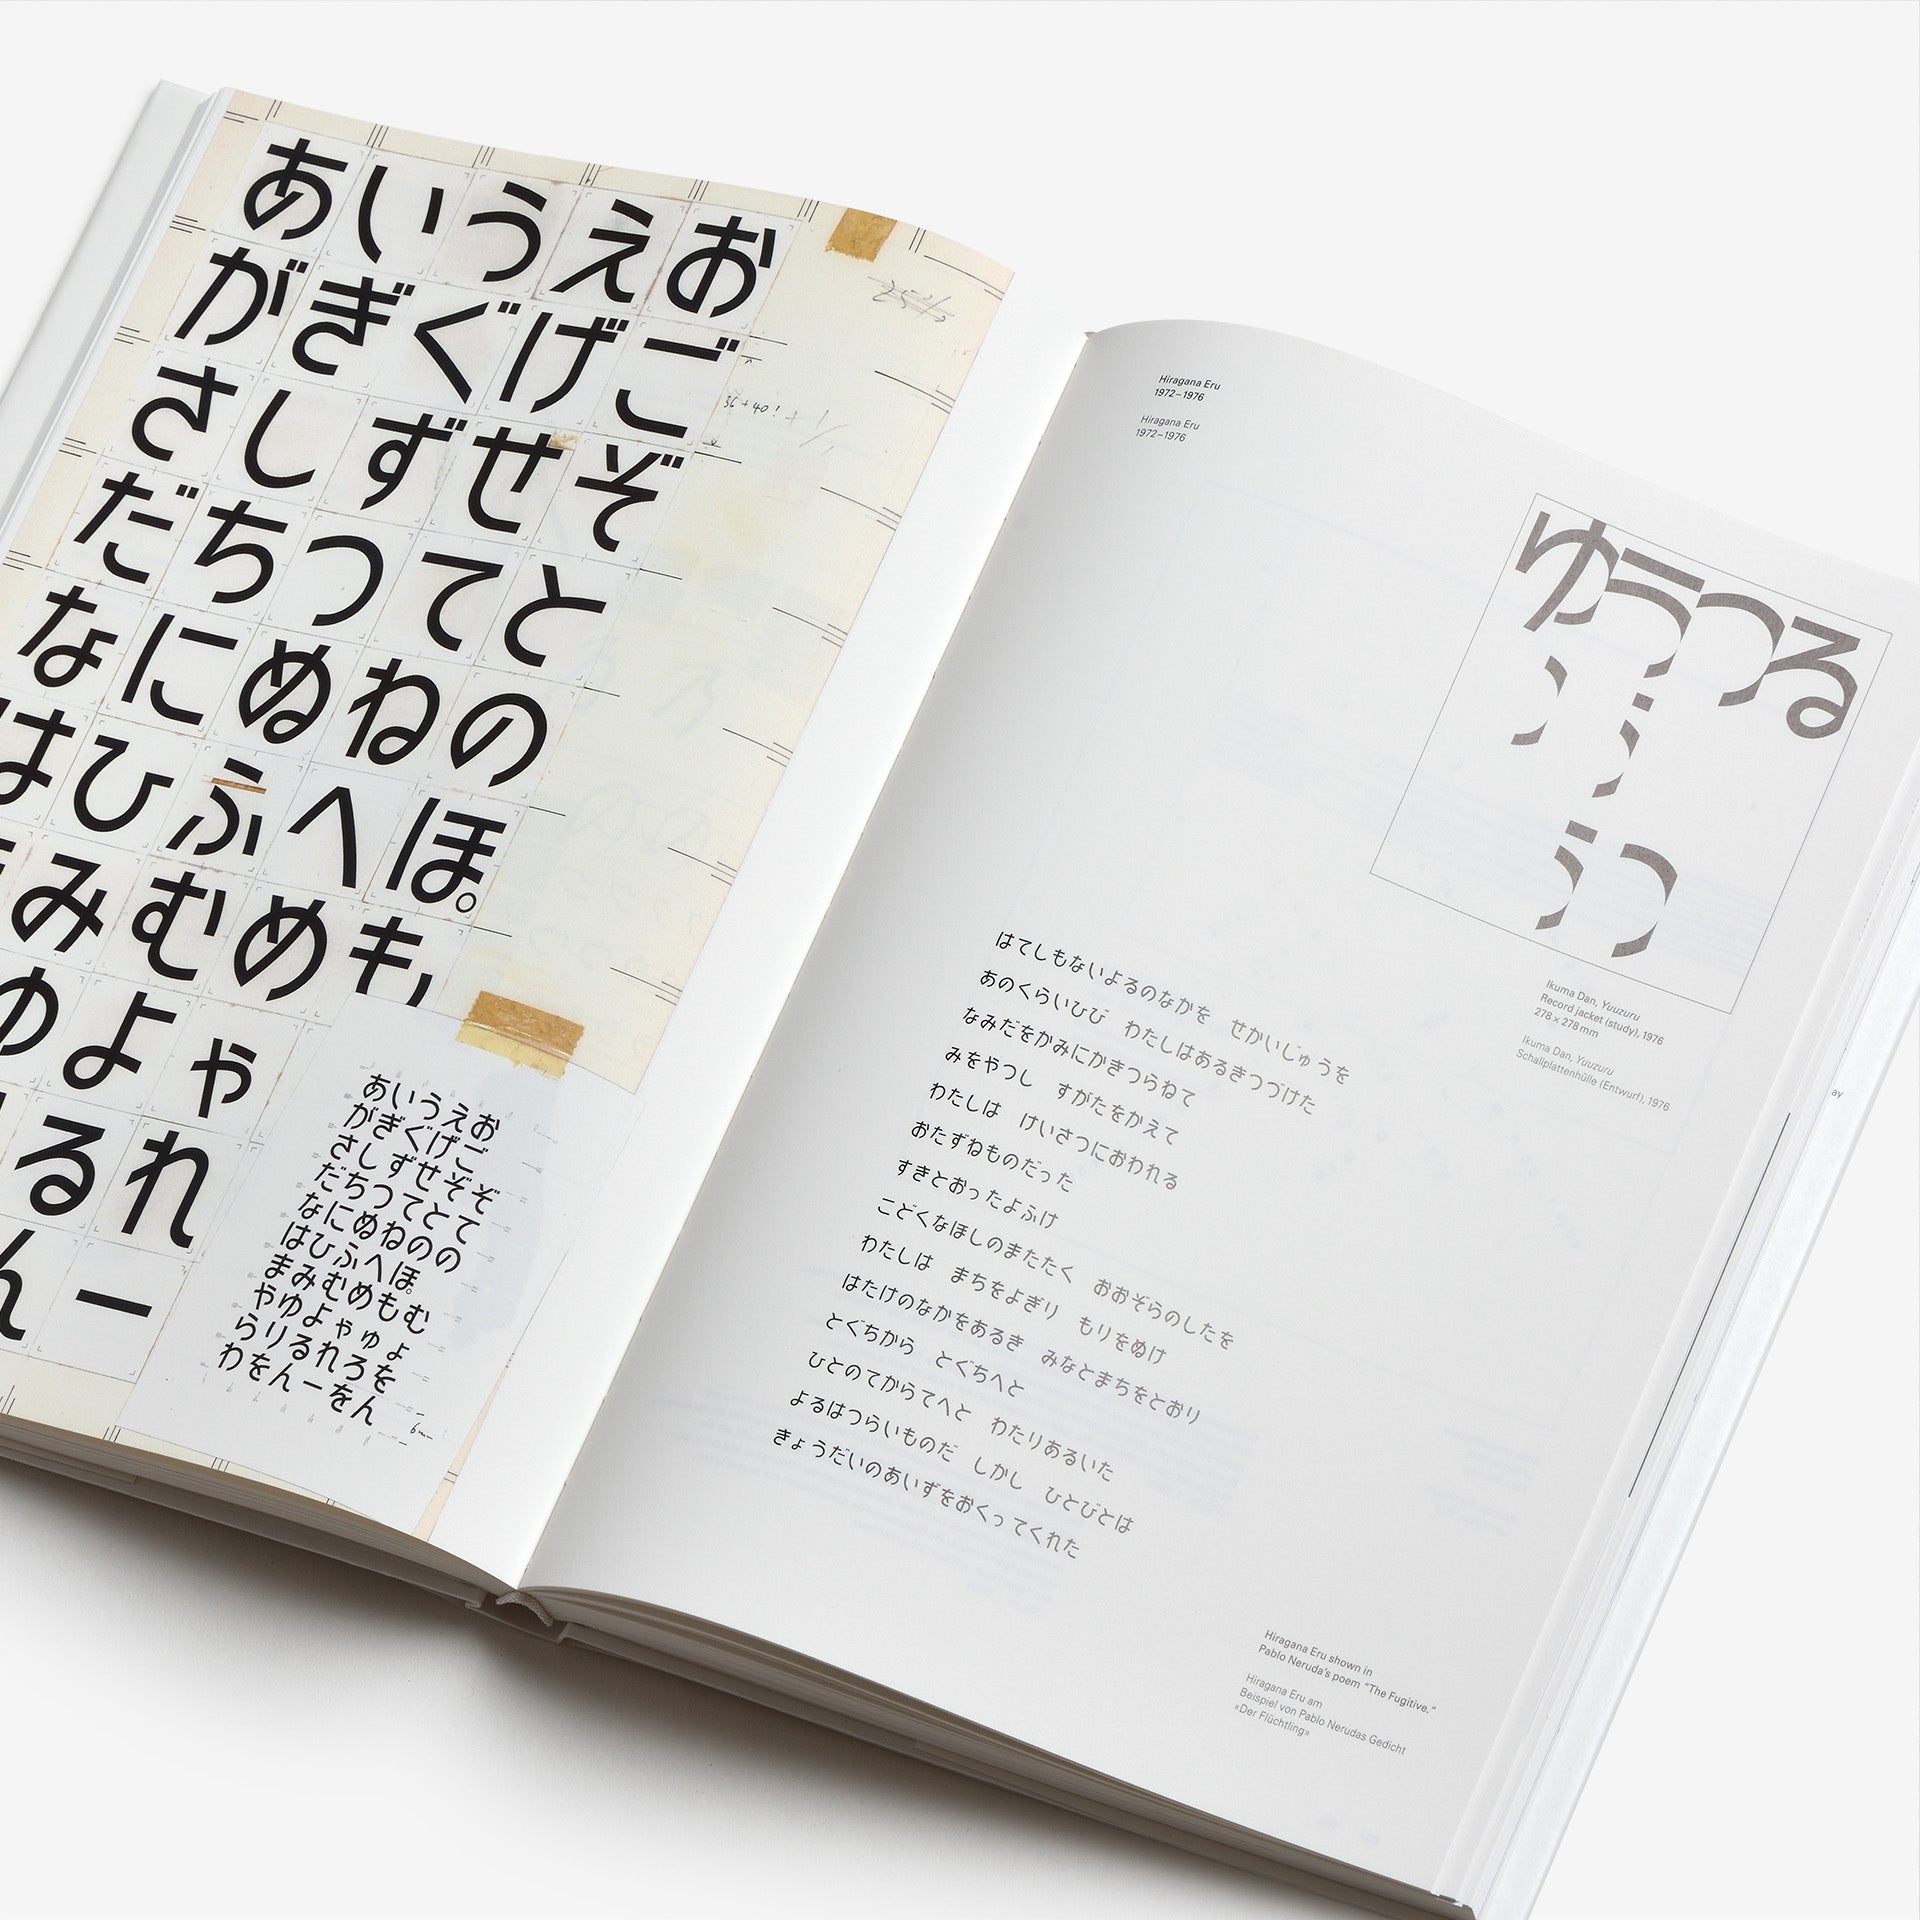 あいうえお
がぎぐげご
さしずせぞ
だちつてと
なにぬねの
はひふへほ。
みむめも、
ゆよゃ
るれ
んー
あいうえお
がぎぐげご
さしずせぞぞ
だちつてとて
なにぬねのの
はひふへほ。
まみむめもむ
やゆよゃゅょ
らりるれろを
わをんーをん
Hiragana Eru
1972–1976
Hiragana Eru
1972–1976
ゆうつる
Ikuma Dan, Yuuzuru
Record jacket (study), 1976
278 × 278 mm
Ikuma Dan, Yuuzuru
Schallplattenhülle (Entwurf), 1976
はてしもないよるのなかを　せかいじゅうを
あのくらいひび　わたしはあるきつづけた
なみだをかみにかきつらねて
みをやつし　すがたをかえて
わたしは　けいさつにおわれる
おたずねものだった
すきとおったよふけ
こどくなほしのまたたく　おおぞらのしたを
わたしは　まちをよぎり　もりをぬけ
はたけのなかをあるき　みなとまちをとおり
とぐちから　とぐちへと
ひとのてからてへと　わたりあるいた
よるはつらいものだ　しかし　ひとびとは
きょうだいのあいずをおくってくれた
Hiragana Eru shown in
Pablo Neruda's poem "The Fugitive."
Hiragana Eru am
Beispiel von Pablo Nerudas Gedicht
«Der Flüchtling»
ay